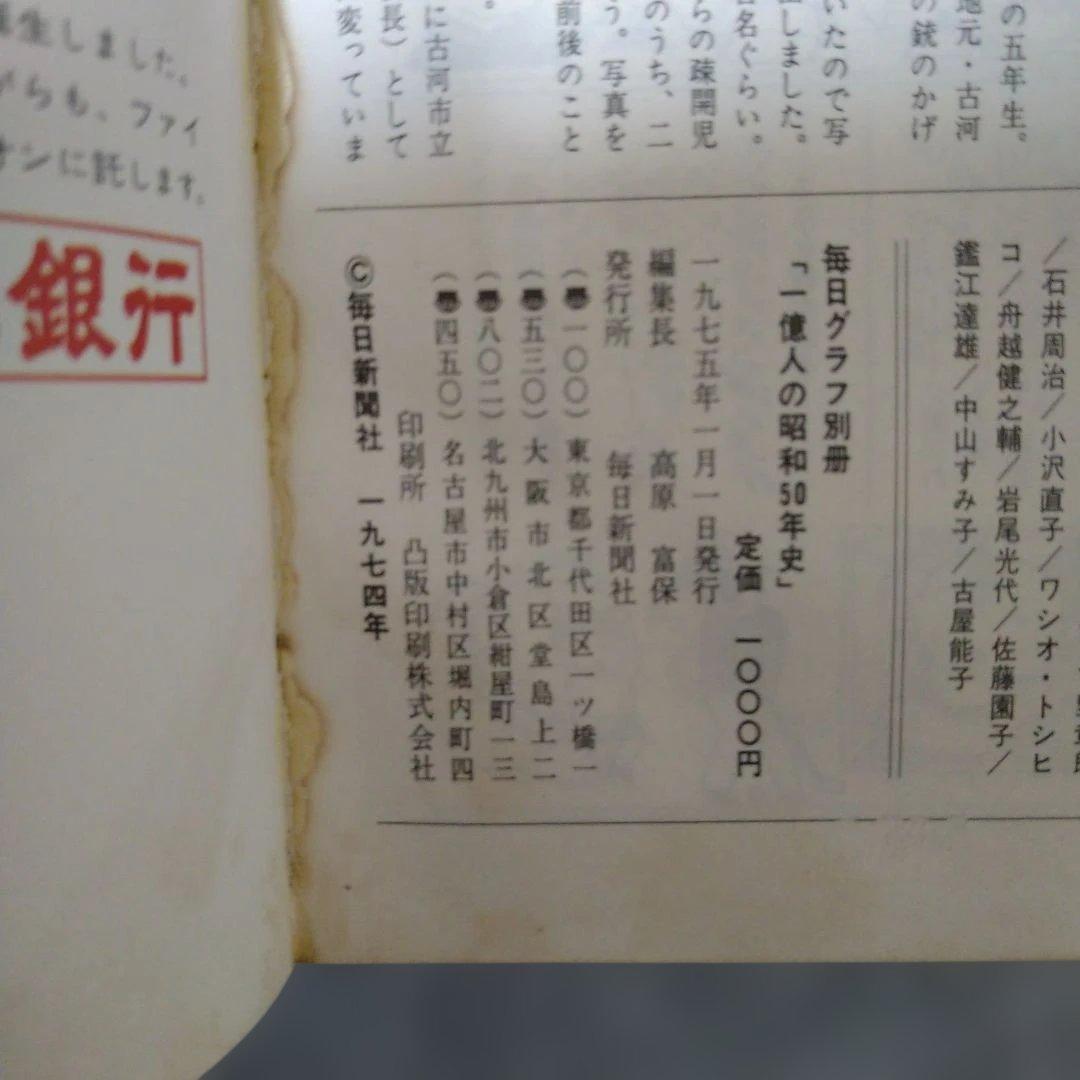 の五年生。
地元・古河
の銃のかげ
いたので写
しました。
名ぐらい。
らの疎開児
のうち、二
う。写真を
前後のこと
に古河市立
長）として
変っていま
／石井周治／小沢直子／ワシオ・トシヒ
コ／舟越健之輔／岩尾光代／佐藤園子／
鑑江達雄／中山すみ子／古屋能子
毎日グラフ別冊
「一億人の昭和50年史」
定価　一〇〇〇円
一九七五年一月一日発行
編集長　高原　富保
発行所　毎日新聞社
（〒一〇〇）東京都千代田区一ツ橋一
（〒五三〇）大阪市北区堂島上二
（〒八〇二）北九州市小倉区紺屋町一三
（〒四五〇）名古屋市中村区堀内町四
印刷所　凸版印刷株式会社
©毎日新聞社　一九七四年
生しました。
がらも、ファイ
オンに託します。
銀行